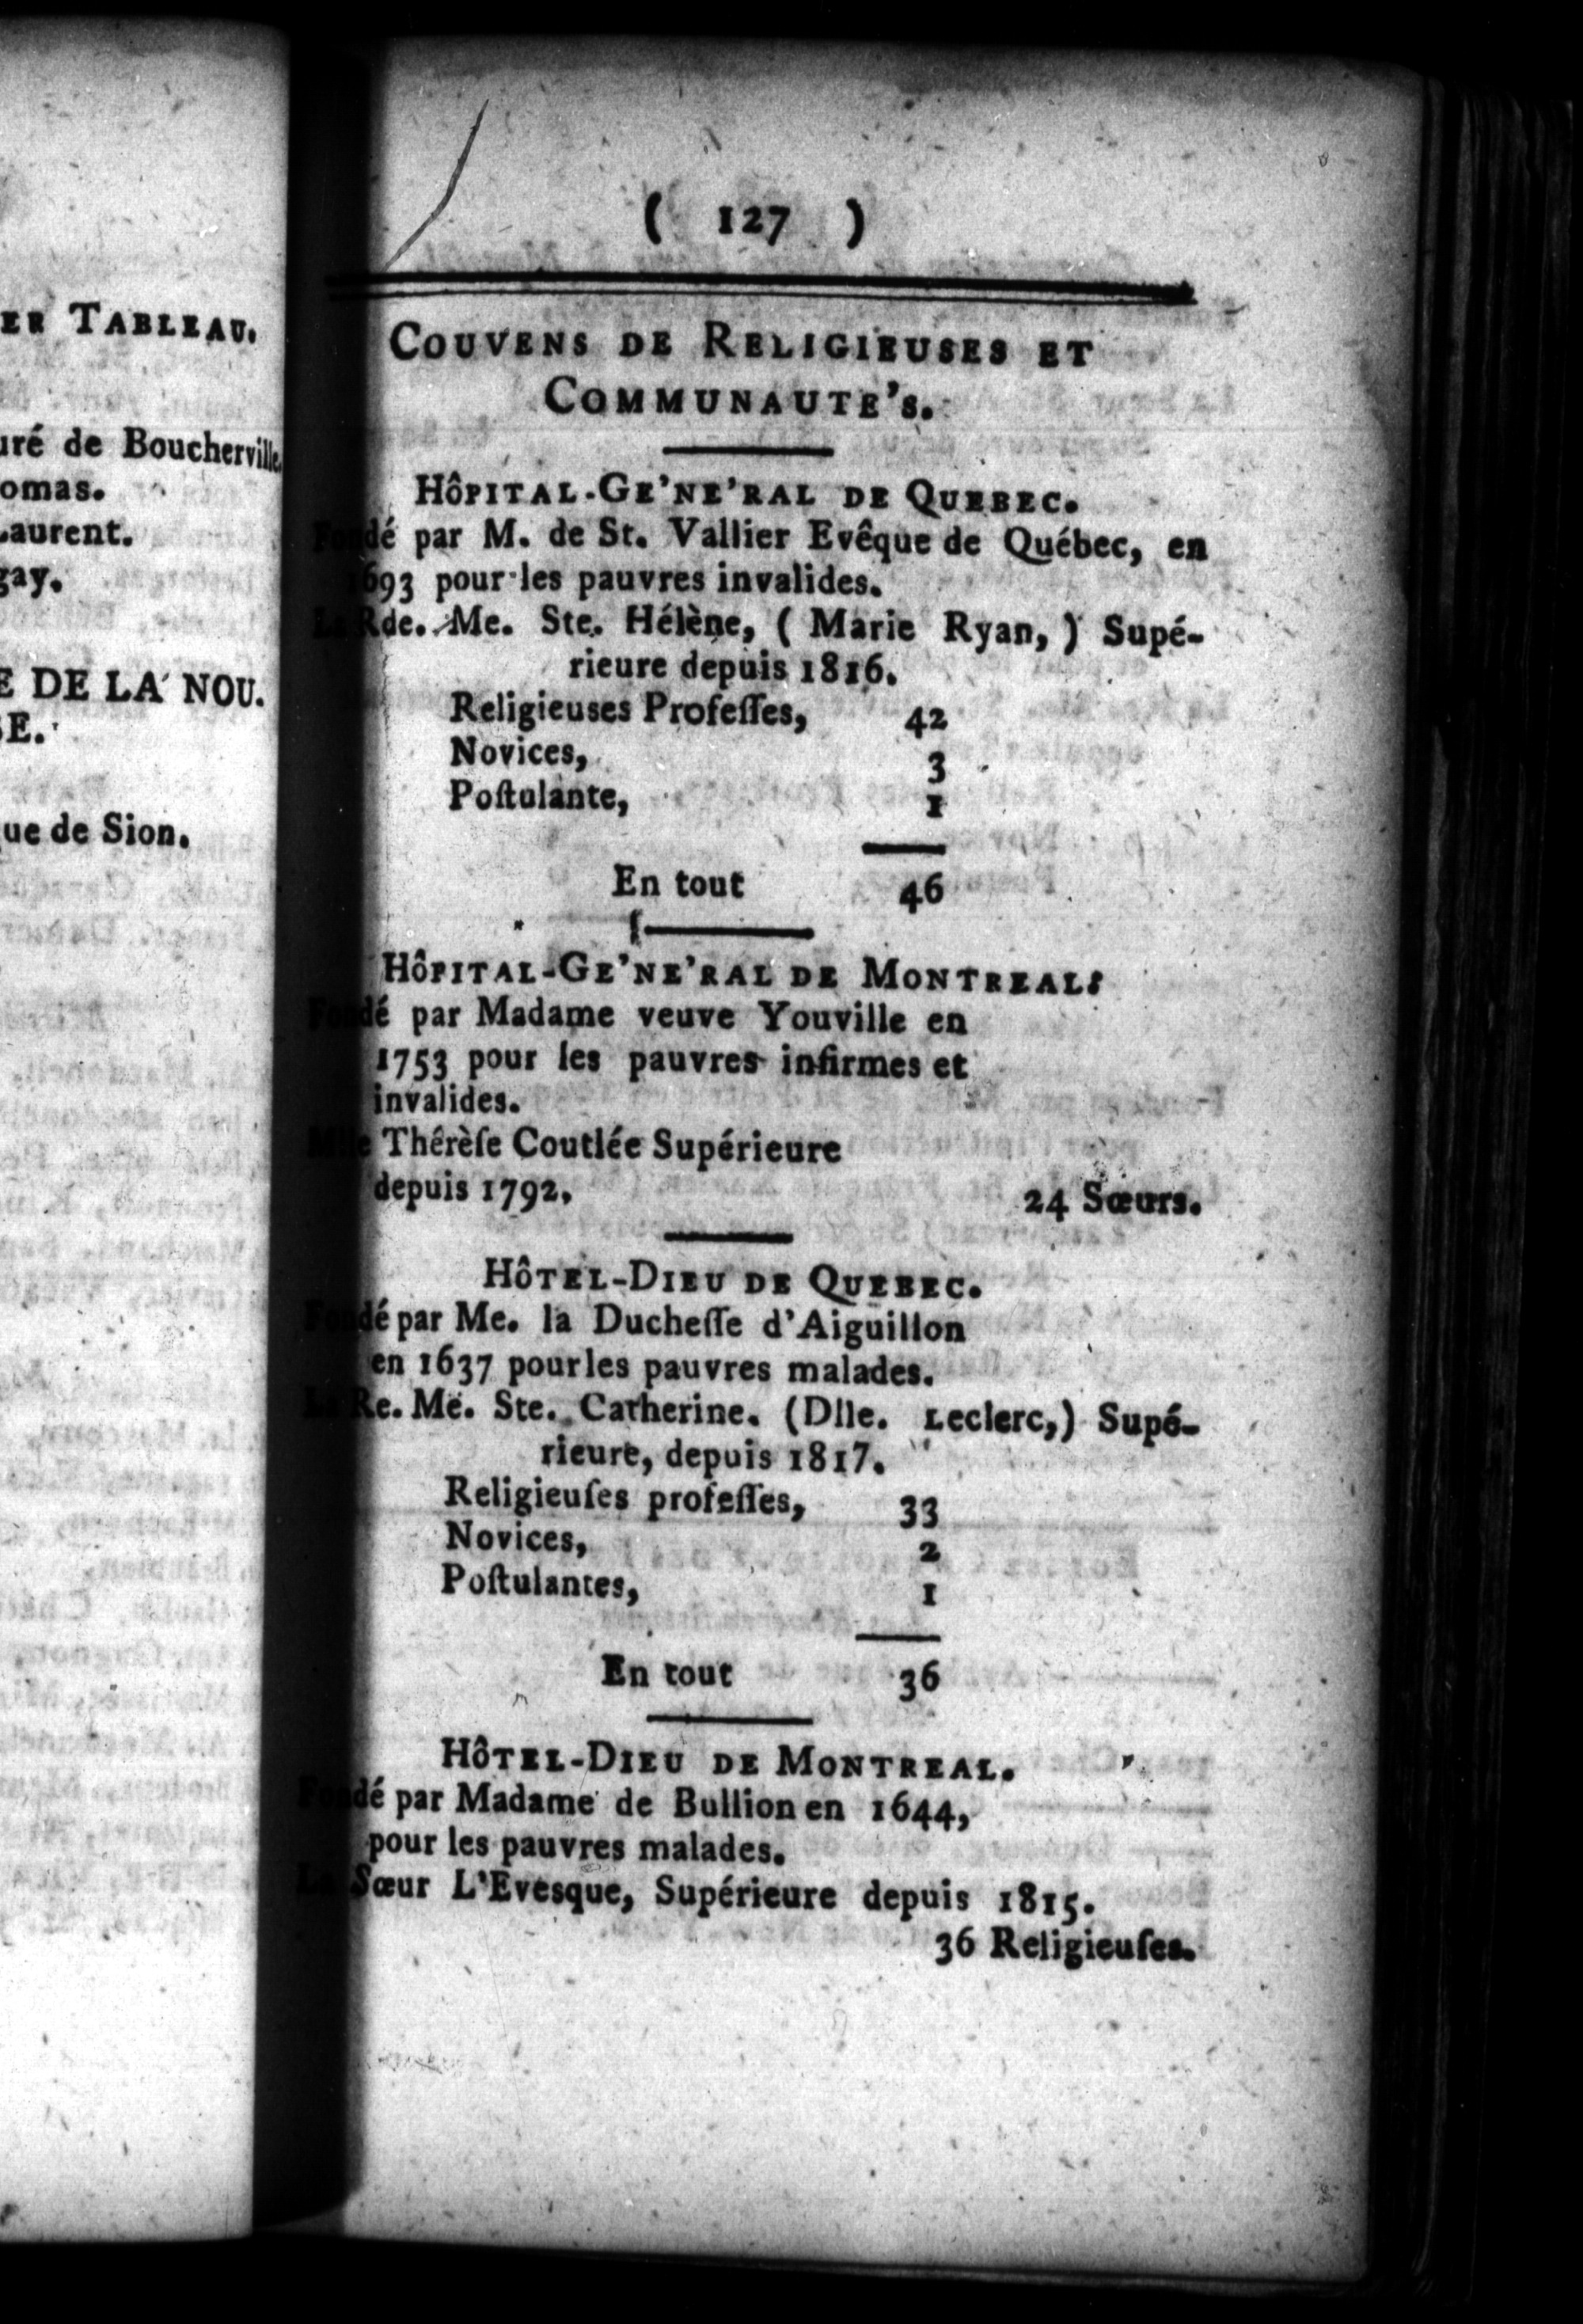 ER TABLEAU.
uré de Boucherville,
omas.
Laurent.
gay.
E DE LA NOU.
SE.
que de Sion.
( 127 )
COUVENS DE RELIGIEUSES ET
COMMUNAUTE'S.
HôPITAL-GE'NE'RAL DE QUEBEC.
Fondé par M. de St. Vallier Evêque de Québec, en
1693 pour les pauvres invalides.
La Rde. Me. Ste. Hélène, ( Marie Ryan, ) Supé-
rieure depuis 1816.
Religieuses Profeſſes, 42
Novices, 3
Poſtulante, 1
En tout 46
HôPITAL-GE'NE'RAL DE MONTREAL:
Fondé par Madame veuve Youville en
1753 pour les pauvres infirmes et
invalides.
Mlle Thérèſe Coutlée Supérieure
depuis 1792. 24 Sœurs.
HôTEL-DIEU DE QUEBEC.
Fondé par Me. la Ducheſſe d'Aiguillon
en 1637 pour les pauvres malades.
La Re. Me. Ste. Catherine. (Dlle. Leclerc,) Supé-
rieure, depuis 1817.
Religieuſes profeſſes, 33
Novices, 2
Poſtulantes, 1
En tout 36
HôTEL-DIEU DE MONTREAL.
Fondé par Madame de Bullion en 1644,
pour les pauvres malades.
La Sœur L'Evesque, Supérieure depuis 1815.
36 Religieuſes.